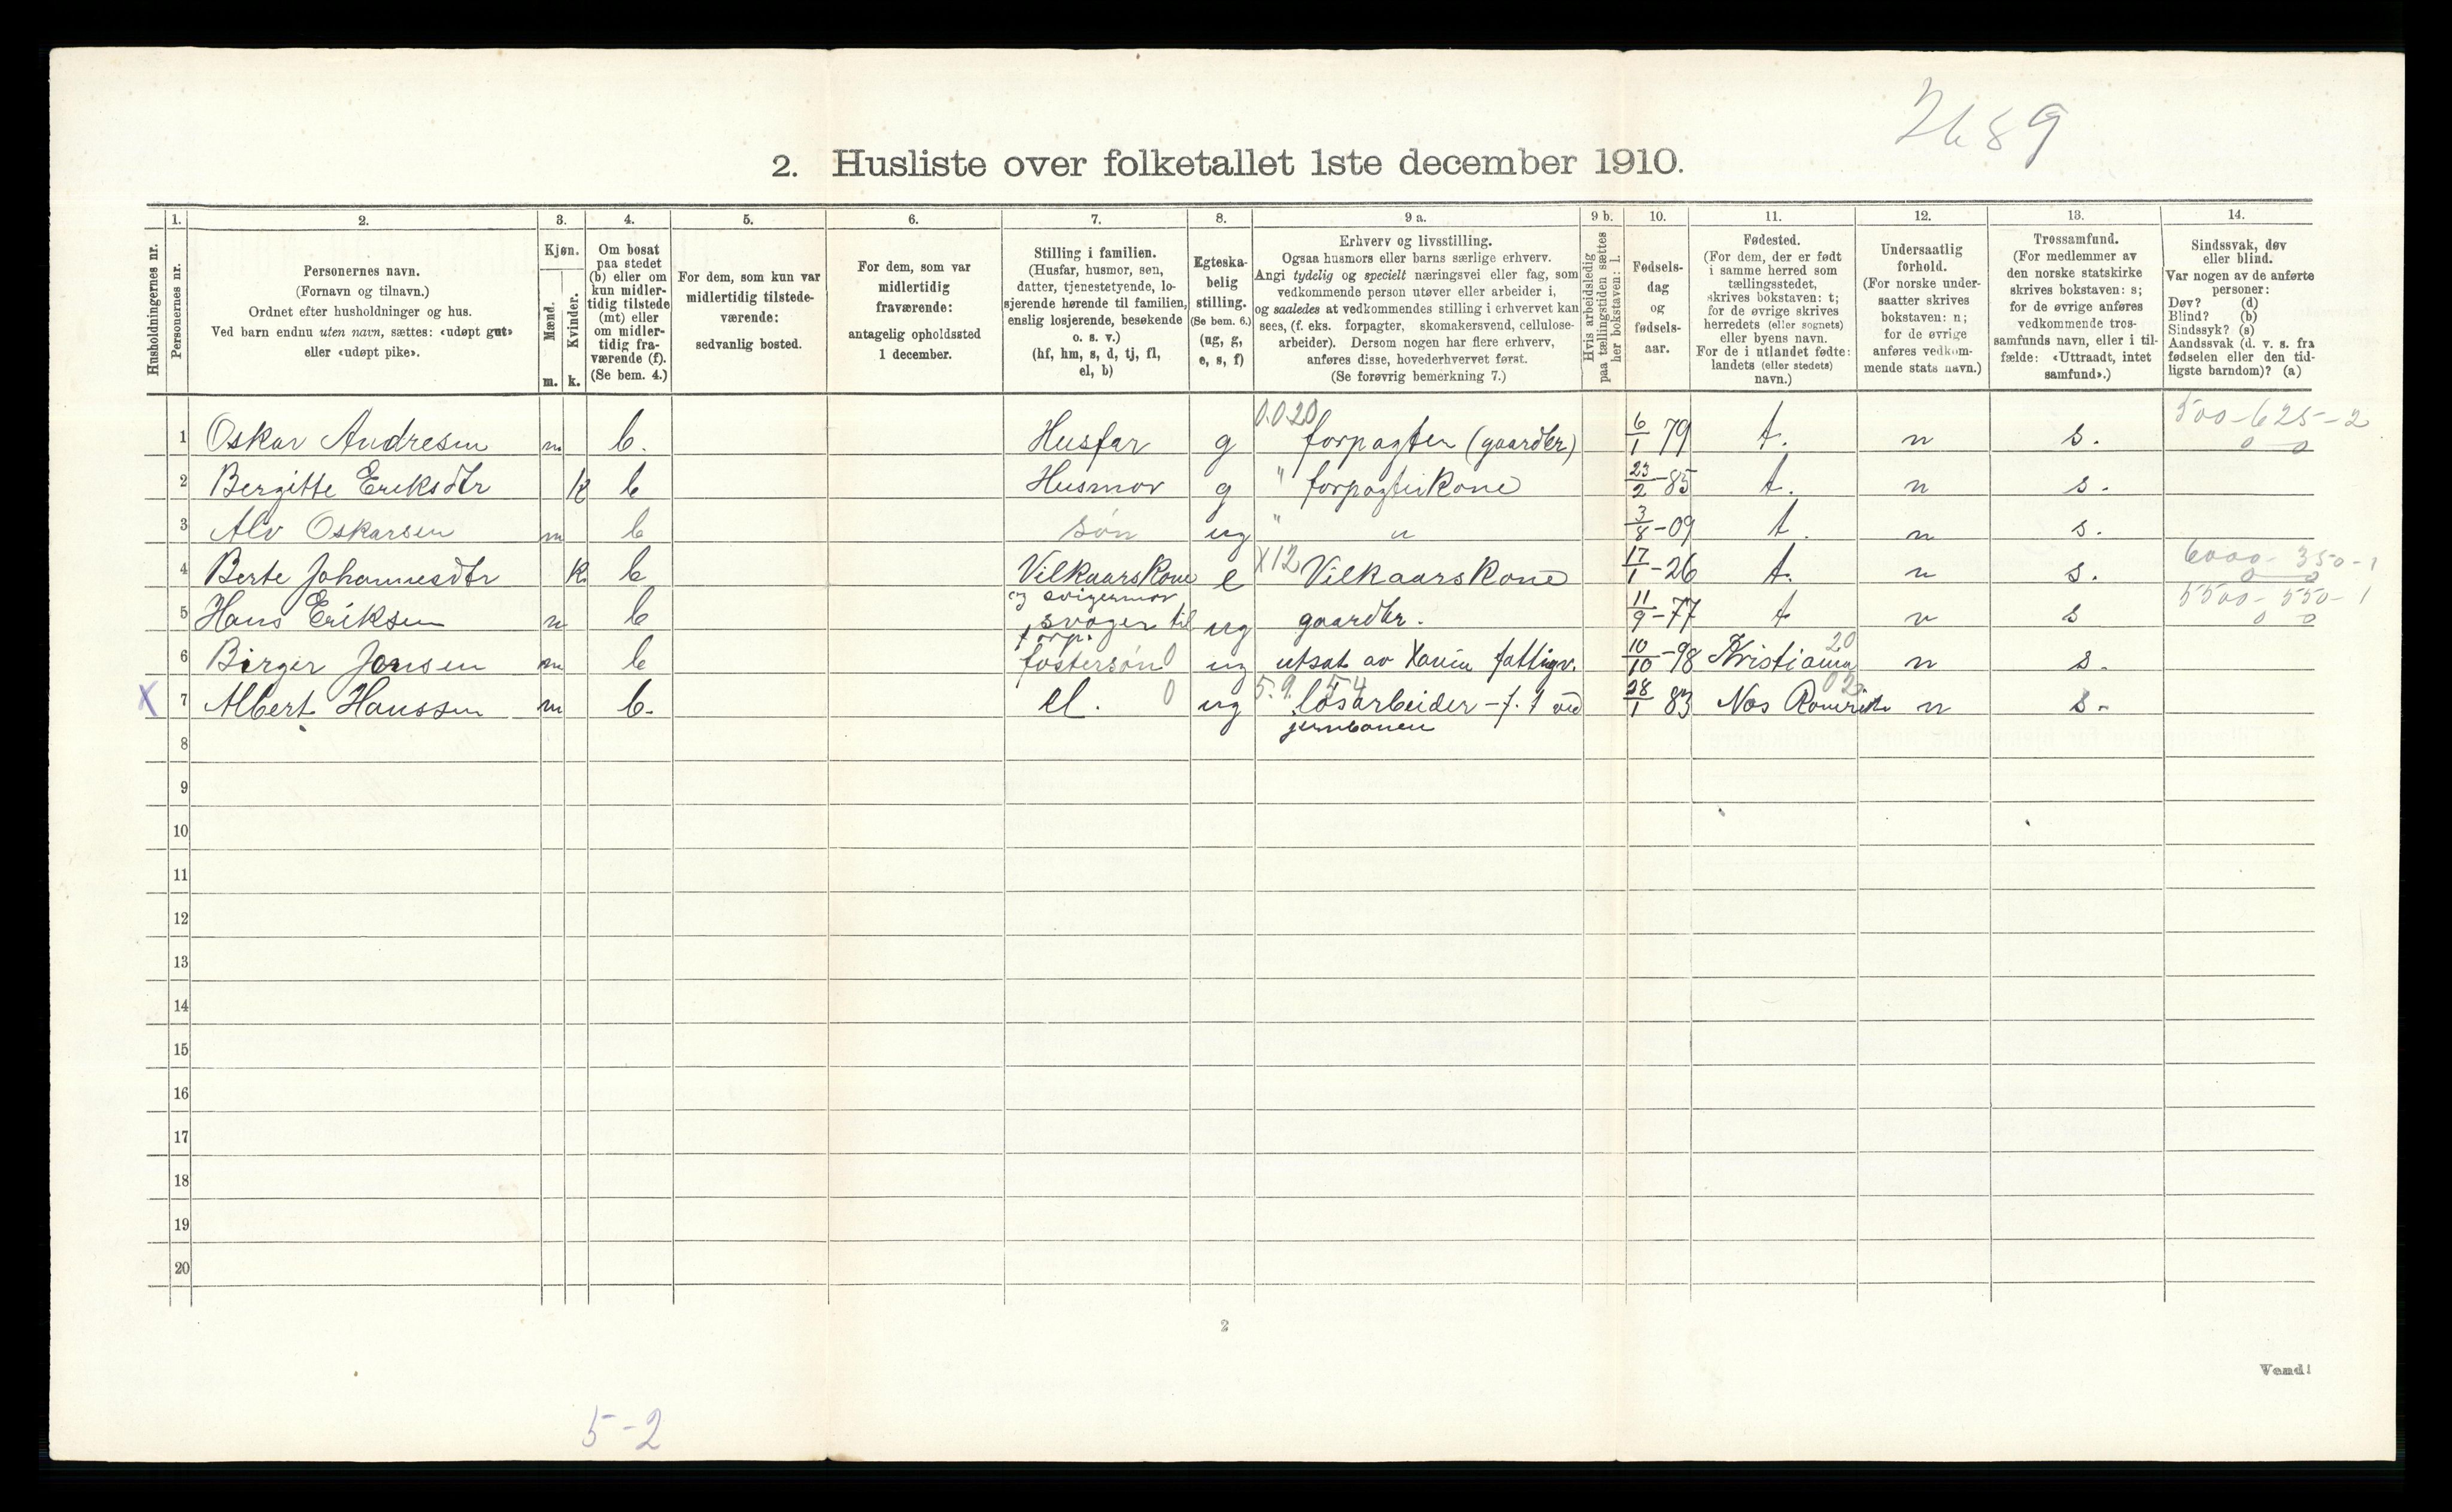 2689
2. Husliste over folketallet 1ste december 1910.
Husholdningernes nr.
1. Personernes nr.
2. Personernes navn. (Fornavn og tilnavn.) Ordnet efter husholdninger og hus. Ved barn endnu uten navn, sættes: «udøpt gut» eller «udøpt pike».
3. Kjøn. Mænd. m. Kvinder. k.
4. Om bosat paa stedet (b) eller om kun midlertidig tilstede (mt) eller om midlertidig fraværende (f). (Se bem. 4.)
5. For dem, som kun var midlertidig tilstedeværende: sedvanlig bosted.
6. For dem, som var midlertidig fraværende: antagelig opholdssted 1 december.
7. Stilling i familien. (Husfar, husmor, søn, datter, tjenestetyende, losjerende hørende til familien, enslig losjerende, besøkende o. s. v.) (hf, hm, s, d, tj, fl, el, b)
8. Egteskabelig stilling. (Se bem. 6.) (ug, g, e, s, f)
9 a. Erhverv og livsstilling. Ogsaa husmors eller barns særlige erhverv. Angi tydelig og specielt næringsvei eller fag, som vedkommende person utøver eller arbeider i, og saaledes at vedkommendes stilling i erhvervet kan sees, (f. eks. forpagter, skomakersvend, cellulosearbeider). Dersom nogen har flere erhverv, anføres disse, hovederhvervet først. (Se forøvrig bemerkning 7.)
9 b. Hvis arbeidsledig paa tællingstiden sættes her bokstaven: l.
10. Fødselsdag og fødselsaar.
11. Fødested. (For dem, der er født i samme herred som tællingsstedet, skrives bokstaven: t; for de øvrige skrives herredets (eller sognets) eller byens navn. For de i utlandet fødte: landets (eller stedets) navn.)
12. Undersaatlig forhold. (For norske undersaatter skrives bokstaven: n; for de øvrige anføres vedkommende stats navn.)
13. Trossamfund. (For medlemmer av den norske statskirke skrives bokstaven: s; for de øvrige anføres vedkommende trossamfunds navn, eller i tilfælde: «Uttraadt, intet samfund».)
14. Sindssvak, døv eller blind. Var nogen av de anførte personer: Døv? (d) Blind? (b) Sindssyk? (s) Aandssvak (d. v. s. fra fødselen eller den tidligste barndom)? (a)
1 Oskar Andresen m. b. Husfar g 0.020 forpagter (gaardbr) 6/1 79 t. n s. 500-625-2 0 0
2 Bergitte Eriksdtr k b Husmor g " forpagterkone 23/2-85 t. n s.
3 Alv Oskarsen m b søn ug " " 3/8-09 t. n s.
4 Berte Johannesdtr k. b Vilkaarskone og svigermor e X12 Vilkaarskone 17/1-26 t. n s. 6000-350-1 0 0
5 Hans Eriksen m b svoger til forp. ug gaardbr. 11/9-77 t n s 5500-550-1 0 0
6 Birger Jensen m b fostersøn 0 ug utsat av fattigv. 10/10-98 Kristiania 20 n s.
X 7 Albert Hanssen m b. el. 0 ug 5.9. 54 løsarbeider - f. t ved jernbanen 28/1 83 Nes Romerike 02 n s.
8
9
10
11
12
13
14
15
16
17
18
19
20
2
Vend!
5-2